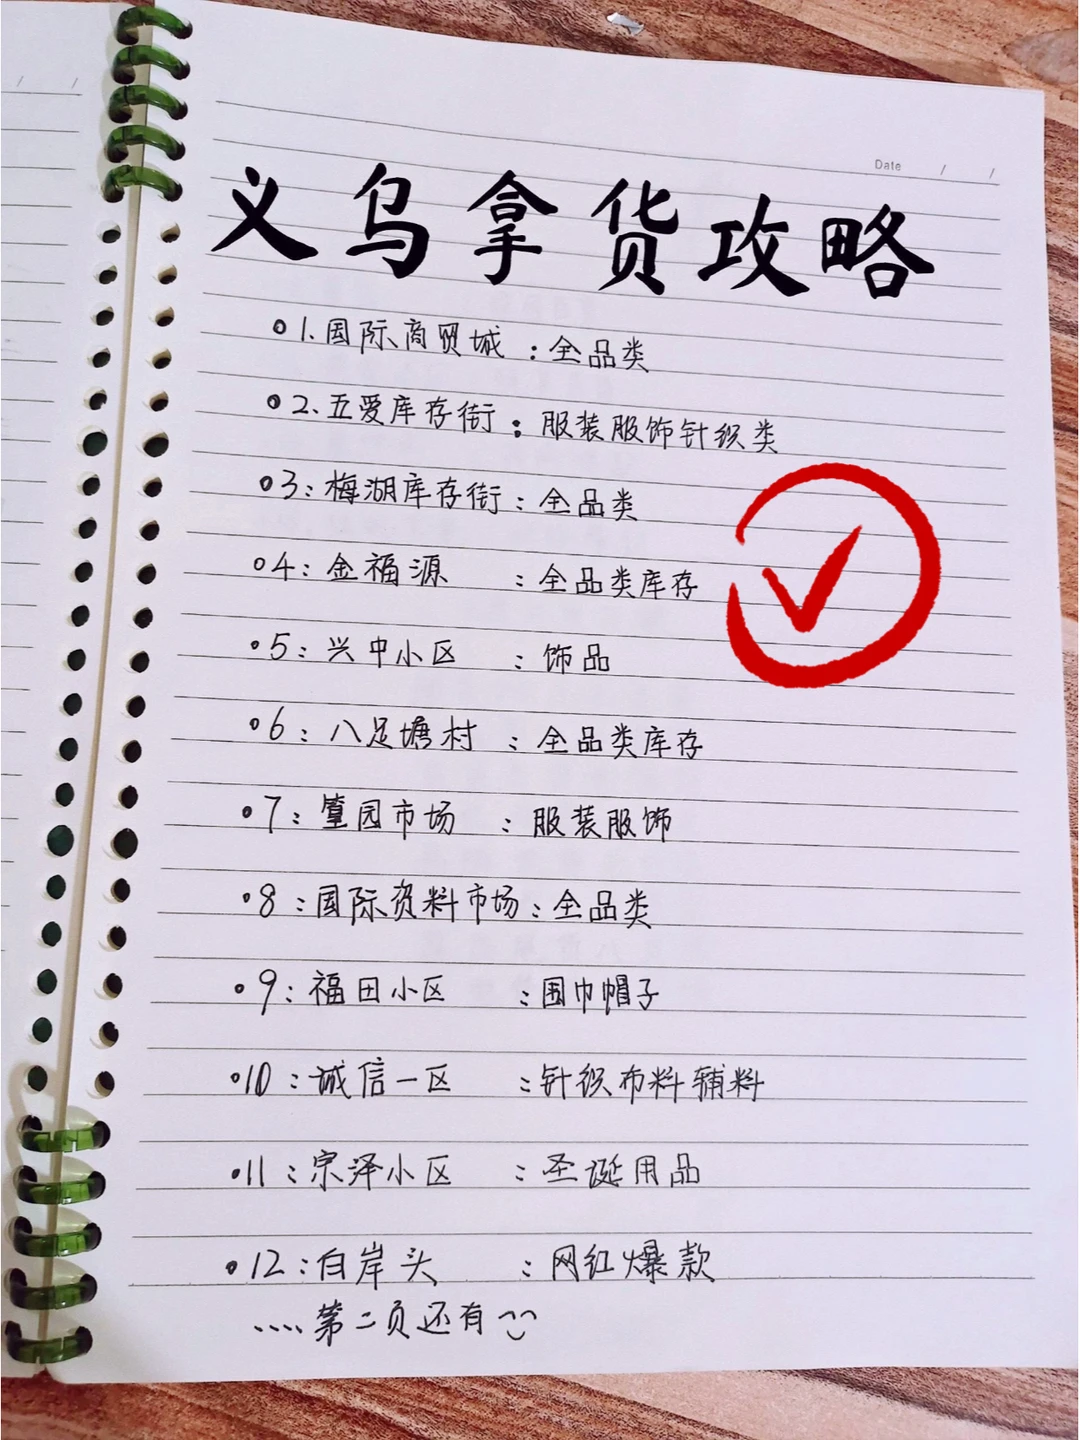 Date / /
义乌拿货攻略
1.国际商贸城:全品类
2.五爱库存街:服装服饰针织类
3:梅湖库存街:全品类
4:金福源:全品类库存
5:兴中小区:饰品
6:八足塘村:全品类库存
7:篁园市场:服装服饰
8:国际资料市场:全品类
9:福田小区:围巾帽子
10:诚信一区:针织布料辅料
11:宗泽小区:圣诞用品
12:白岸头:网红爆款
....第二页还有